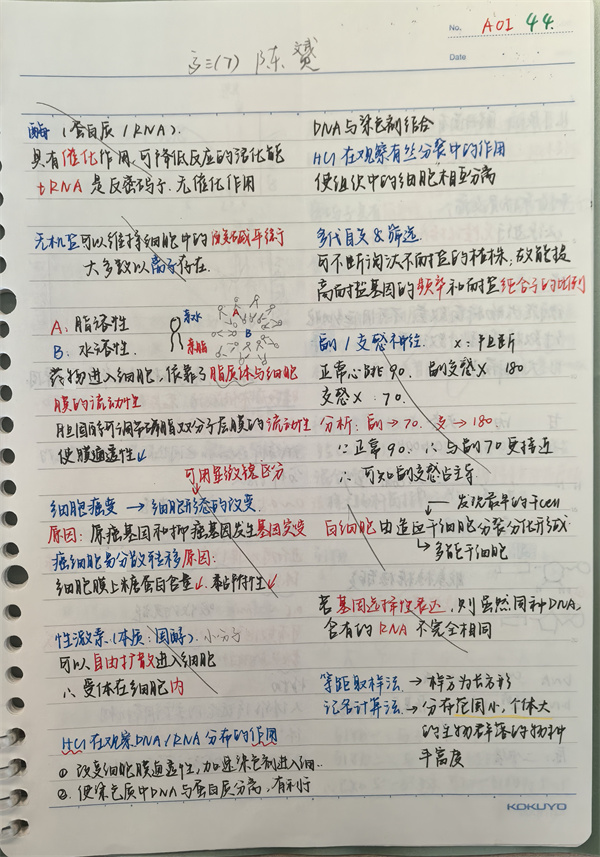 No. A01 44.
Date
高三(7) 陈赟
酶 (蛋白质/RNA).
具有催化作用,可降低反应的活化能
tRNA 是反密码子,无催化作用
无机盐可以维持细胞中的酸碱平衡
大多数以离子存在.
A: 脂溶性
B: 水溶性.
亲水
亲脂
A
B
药物进入细胞,依靠了脂质体与细胞
膜的流动性
胆固醇可调节磷脂双分子层膜的流动性
使膜通透性↓
可用显微镜区分
细胞癌变 → 细胞形态的改变.
原因: 原癌基因和抑癌基因发生基因突变
癌细胞易分散转移原因:
细胞膜上糖蛋白含量↓. 黏附性↓
性激素.(本质:固醇) 小分子
可以自由扩散进入细胞
∴ 受体在细胞内
HCl在观察DNA/RNA分布的作用
① 改变细胞膜通透性,加速染色剂进入细..
②. 使染色质中DNA与蛋白质分离,有利于
DNA与染色剂结合
HCl 在观察有丝分裂中的作用
使组织中的细胞相互分离
多代自交&筛选.
可不断淘汰不耐盐的植株,故能提
高耐盐基因的频率和耐盐纯合子的比例
副/交感神经. x:阻断
正常心跳 90. 副交感x 180
交感x : 70.
分析: 副→70. 交→180
∵正常 90. ∴与副70更接近
∴可知副交感占主导.
发育最早的干cell
白细胞由造血干细胞分裂分化形成
多能干细胞
若基因选择性表达,则虽然同种DNA,
含有的RNA不完全相同
等距取样法. → 样方为长方形
记名计算法. → 分布范围小,个体大
的生物群落的物种
丰富度
KOKUYO